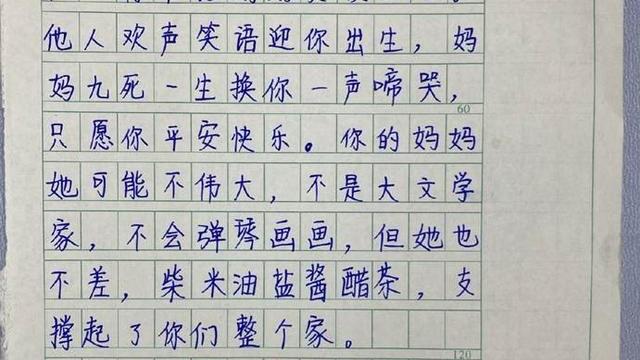 他人欢声笑语迎你出生，妈
妈九死一生换你一声啼哭，
60
只愿你平安快乐。你的妈妈
她可能不伟大，不是大文学
家，不会弹琴画画，但她也
不差，柴米油盐酱醋茶，支
撑起了你们整个家。
120